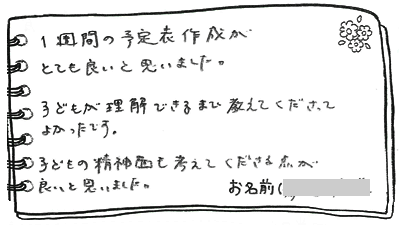 1週間の予定表作成が
とても良いと思いました。
子どもが理解できるまで教えてくださって
よかったです。
子どもの精神面も考えてくださる点が
良いと思いました。
お名前(